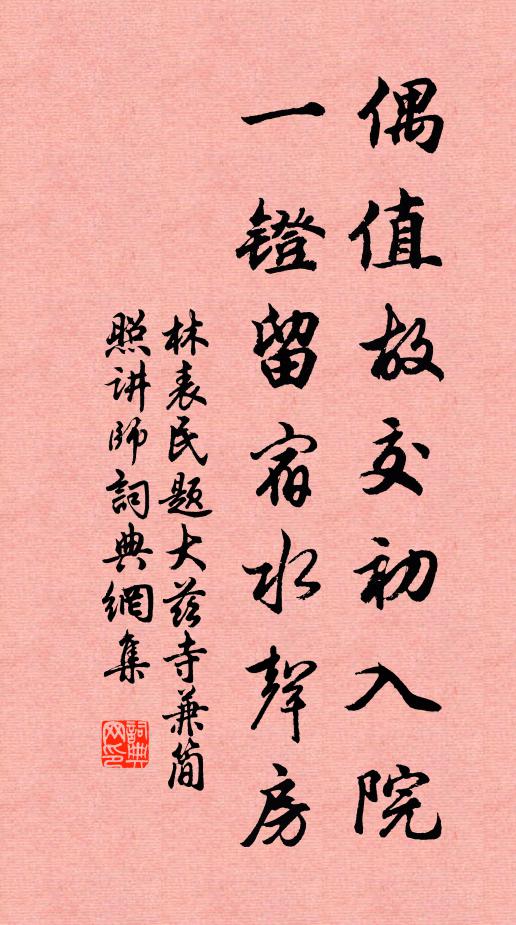 偶值故交初入院
一镫留宿水聲房
林表民題大慈寺兼簡
照讲師詞典網集
詞典
网印